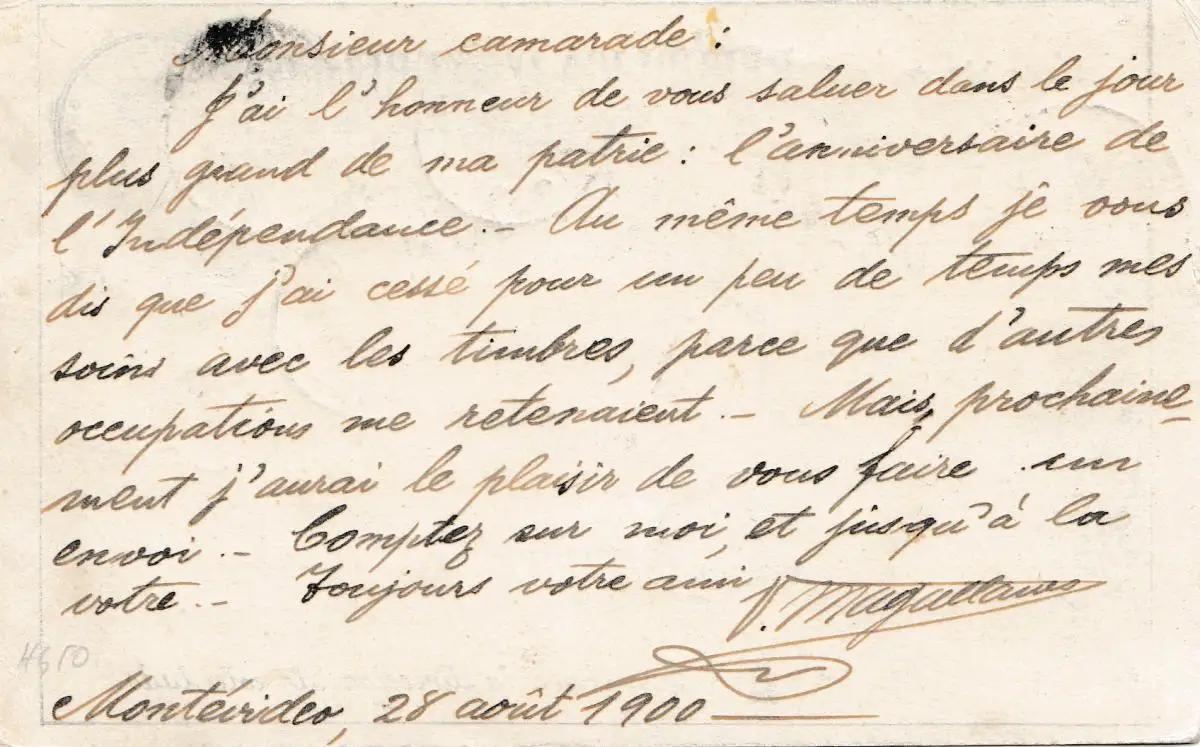 Monsieur camarade :
J'ai l'honneur de vous saluer dans le jour
plus grand de ma patrie : l'anniversaire de
l'Indépendance. - Au même temps je vous
dis que j'ai cessé pour un peu de temps mes
soins avec les timbres, parce que d'autres
occupations me retenaient. - Mais, prochaine-
ment j'aurai le plaisir de vous faire un
envoi. - Comptez sur moi, et jusqu'à la
votre. - Toujours votre ami
4610
Montévideo, 28 août 1900